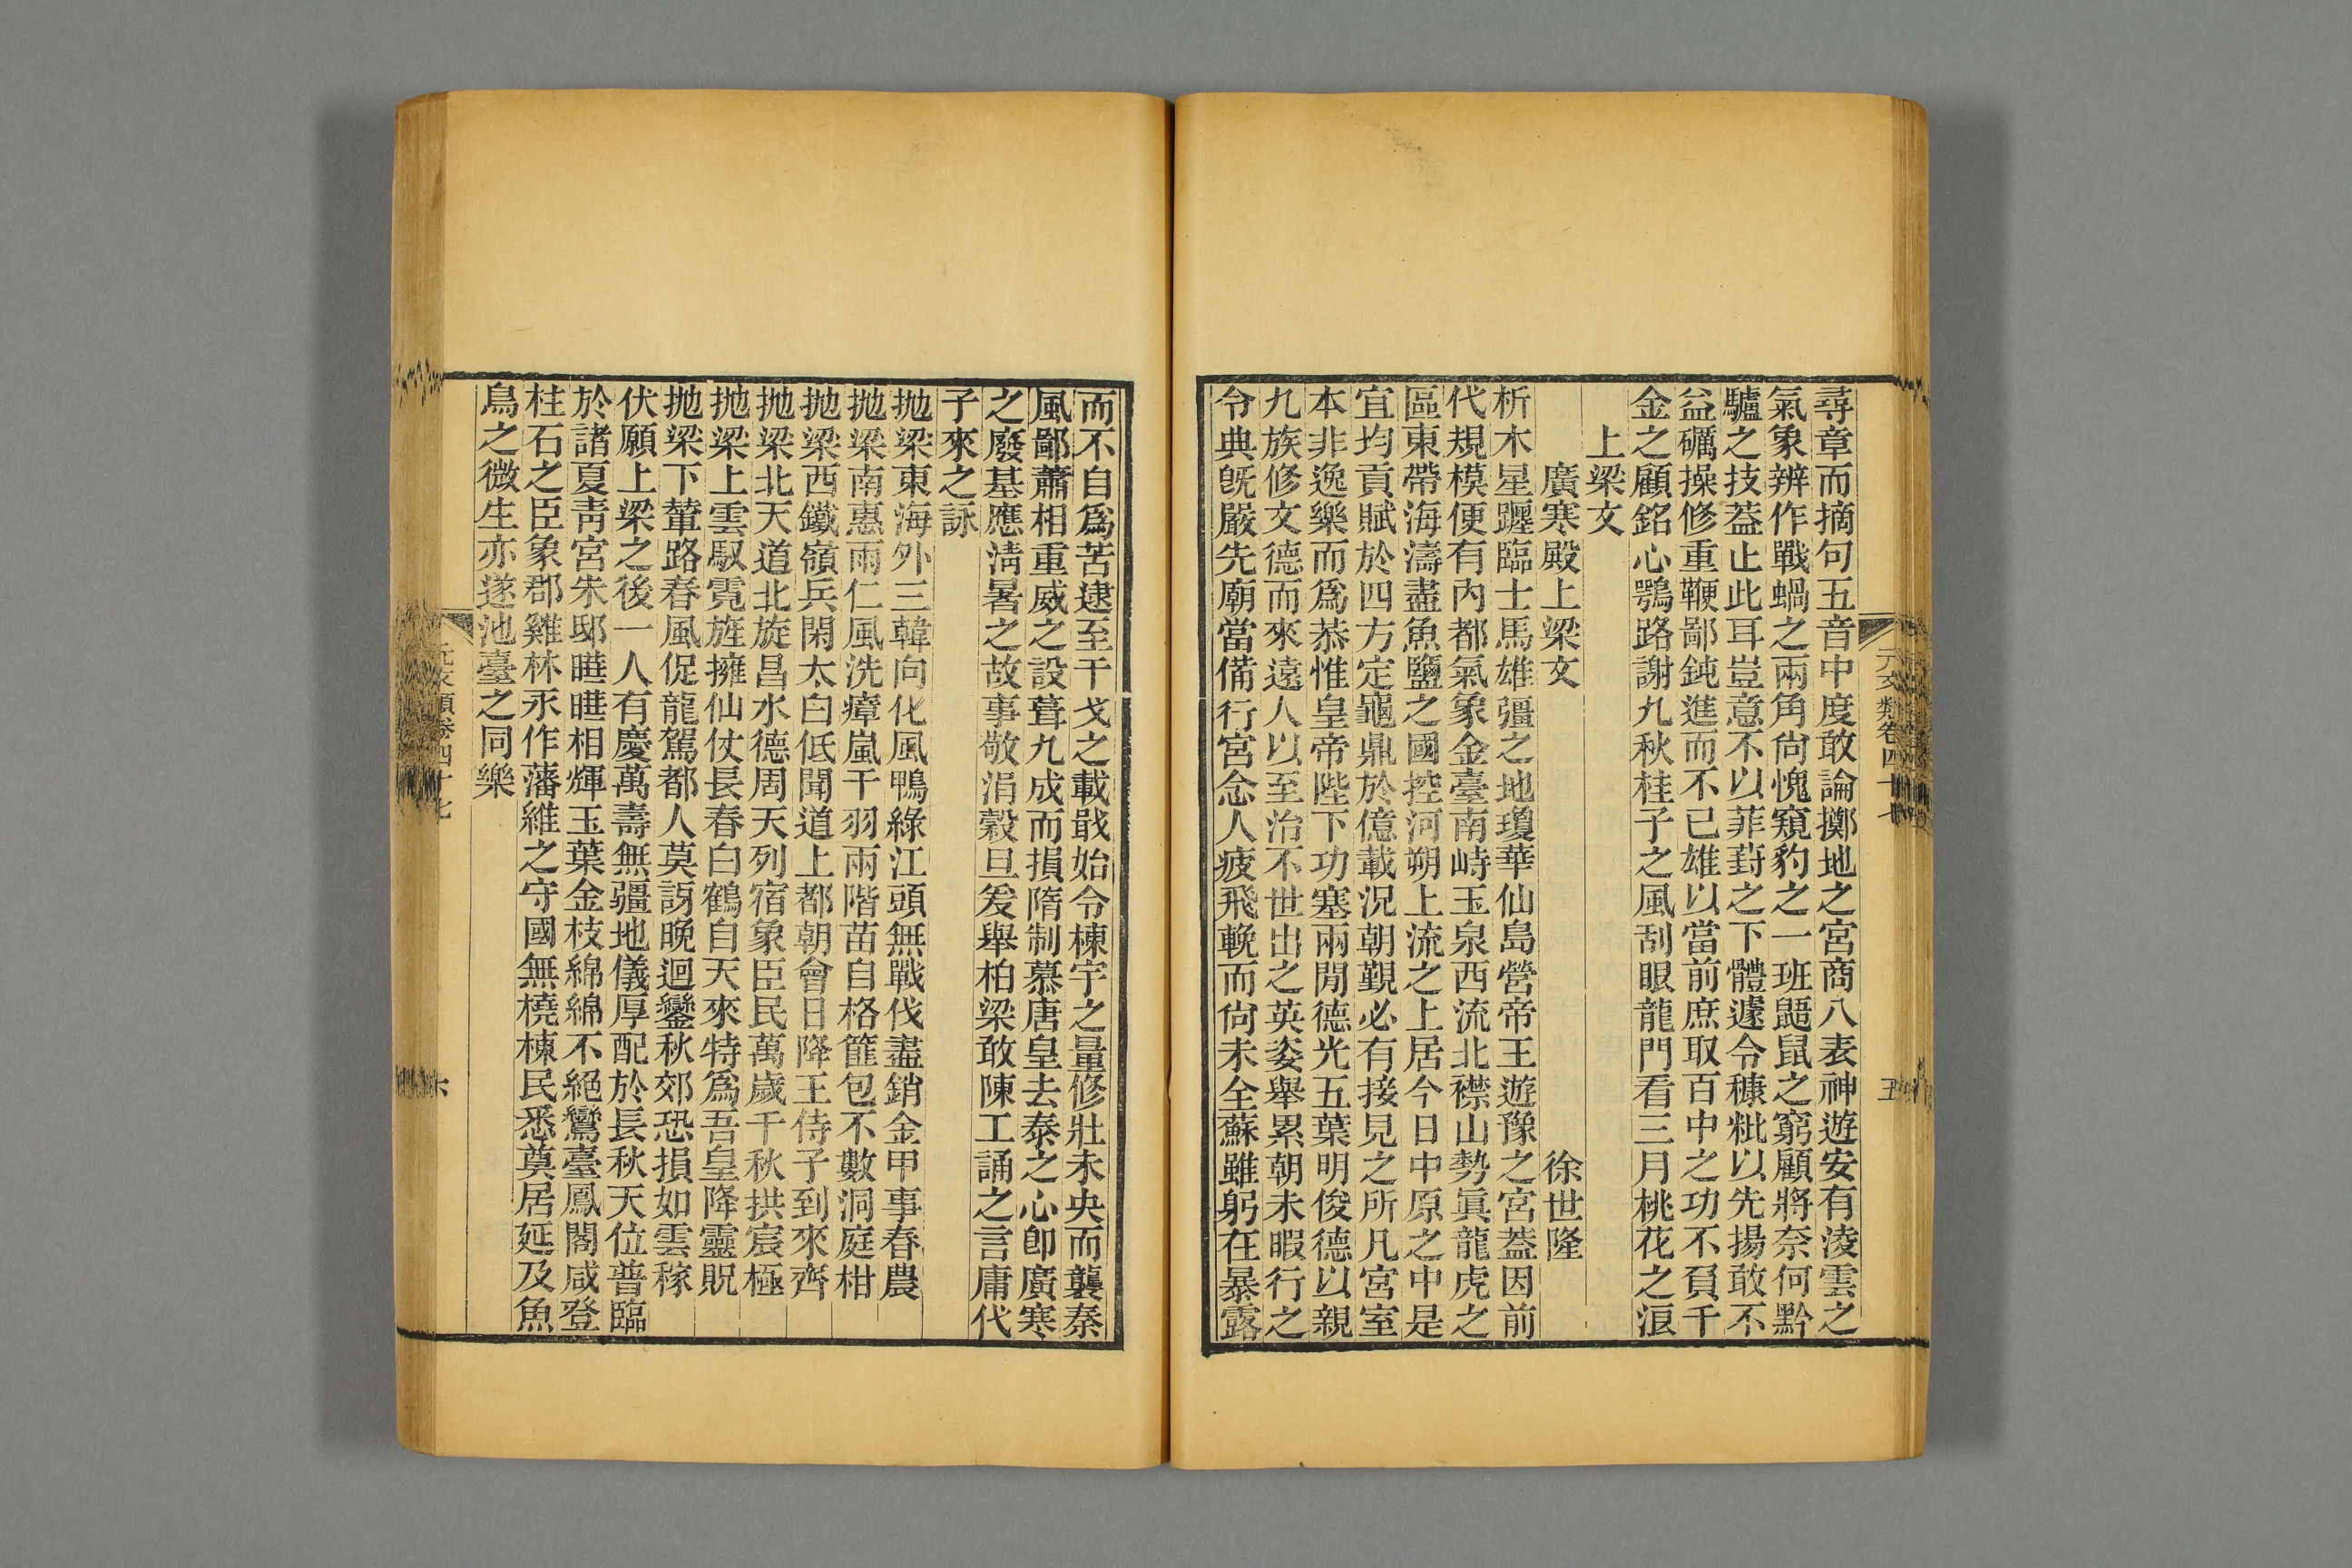 尋章而摘句五音中度敢論擲地之宮商八表神遊安有淩雲之
氣象辨作戰蝸之兩角尙愧窺豹之一班鼯鼠之窮顧將奈何黔
驢之技葢止此耳豈意不以菲葑之下體遽令穅粃以先揚敢不
益礪操修重鞭鄙鈍進而不已雄以當前庶取百中之功不負千
金之顧銘心鶚路謝九秋桂子之風刮眼龍門看三月桃花之浪
上梁文
廣寒殿上梁文 徐世隆
析木星躔臨士馬雄彊之地瓊華仙島營帝王遊豫之宮葢因前
代規模便有內都氣象金臺南峙玉泉西流北襟山勢眞龍虎之
區東帶海濤盡魚鹽之國控河朔上流之上居今日中原之中是
宜均貢賦於四方定龜鼎於億載況朝覲必有接見之所凡宮室
本非逸樂而爲恭惟皇帝陛下功塞兩閒德光五葉明俊德以親
九族修文德而來遠人以至治不世出之英姿舉累朝未暇行之
令典旣嚴先廟當備行宮念人疲飛輓而尙未全蘇雖躬在暴露
元文類卷四十七
五
而不自爲苦逮至干戈之載戢始令棟宇之量修壯未央而襲秦
風鄙蕭相重威之設葺九成而損隋制慕唐皇去泰之心卽廣寒
之廢基應淸暑之故事敬涓穀旦爰舉柏梁敢陳工誦之言庸代
子來之詠
拋梁東海外三韓向化風鴨綠江頭無戰伐盡銷金甲事春農
拋梁南惠雨仁風洗瘴嵐干羽兩階苗自格篚包不數洞庭柑
拋梁西鐵嶺兵閑太白低聞道上都朝會日降王侍子到來齊
拋梁北天道北旋昌水德周天列宿象臣民萬歲千秋拱宸極
拋梁上雲馭霓旌擁仙仗長春白鶴自天來特爲吾皇降靈貺
拋梁下輦路春風促龍駕都人莫訝晚迴鑾秋郊恐損如雲稼
伏願上梁之後一人有慶萬壽無疆地儀厚配於長秋天位普臨
於諸夏靑宮朱邸曄曄相輝玉葉金枝綿綿不絕鸞臺鳳閣咸登
柱石之臣象郡雞林永作藩維之守國無橈棟民悉奠居延及魚
鳥之微生亦遂池臺之同樂
元文類卷四十七
六